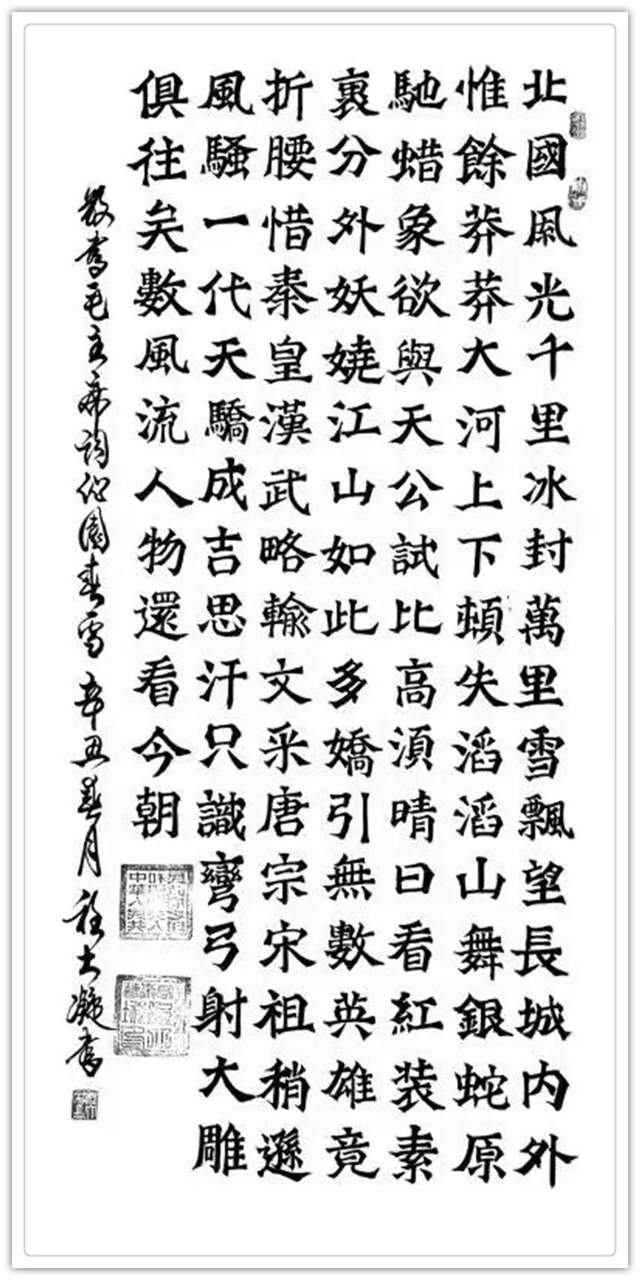 北國風光千里冰封萬里雪飄望長城内外
惟餘莽莽大河上下頓失滔滔山舞銀蛇原
馳蜡象欲與天公試比高須晴日看紅装素
裹分外妖嬈江山如此多嬌引無數英雄竟
折腰惜秦皇漢武略輸文采唐宗宋祖稍遜
風騷一代天驕成吉思汗只識彎弓射大雕
俱往矣數風流人物還看今朝
敬書毛主席詞沁園春雪 辛丑春月 程大凝書